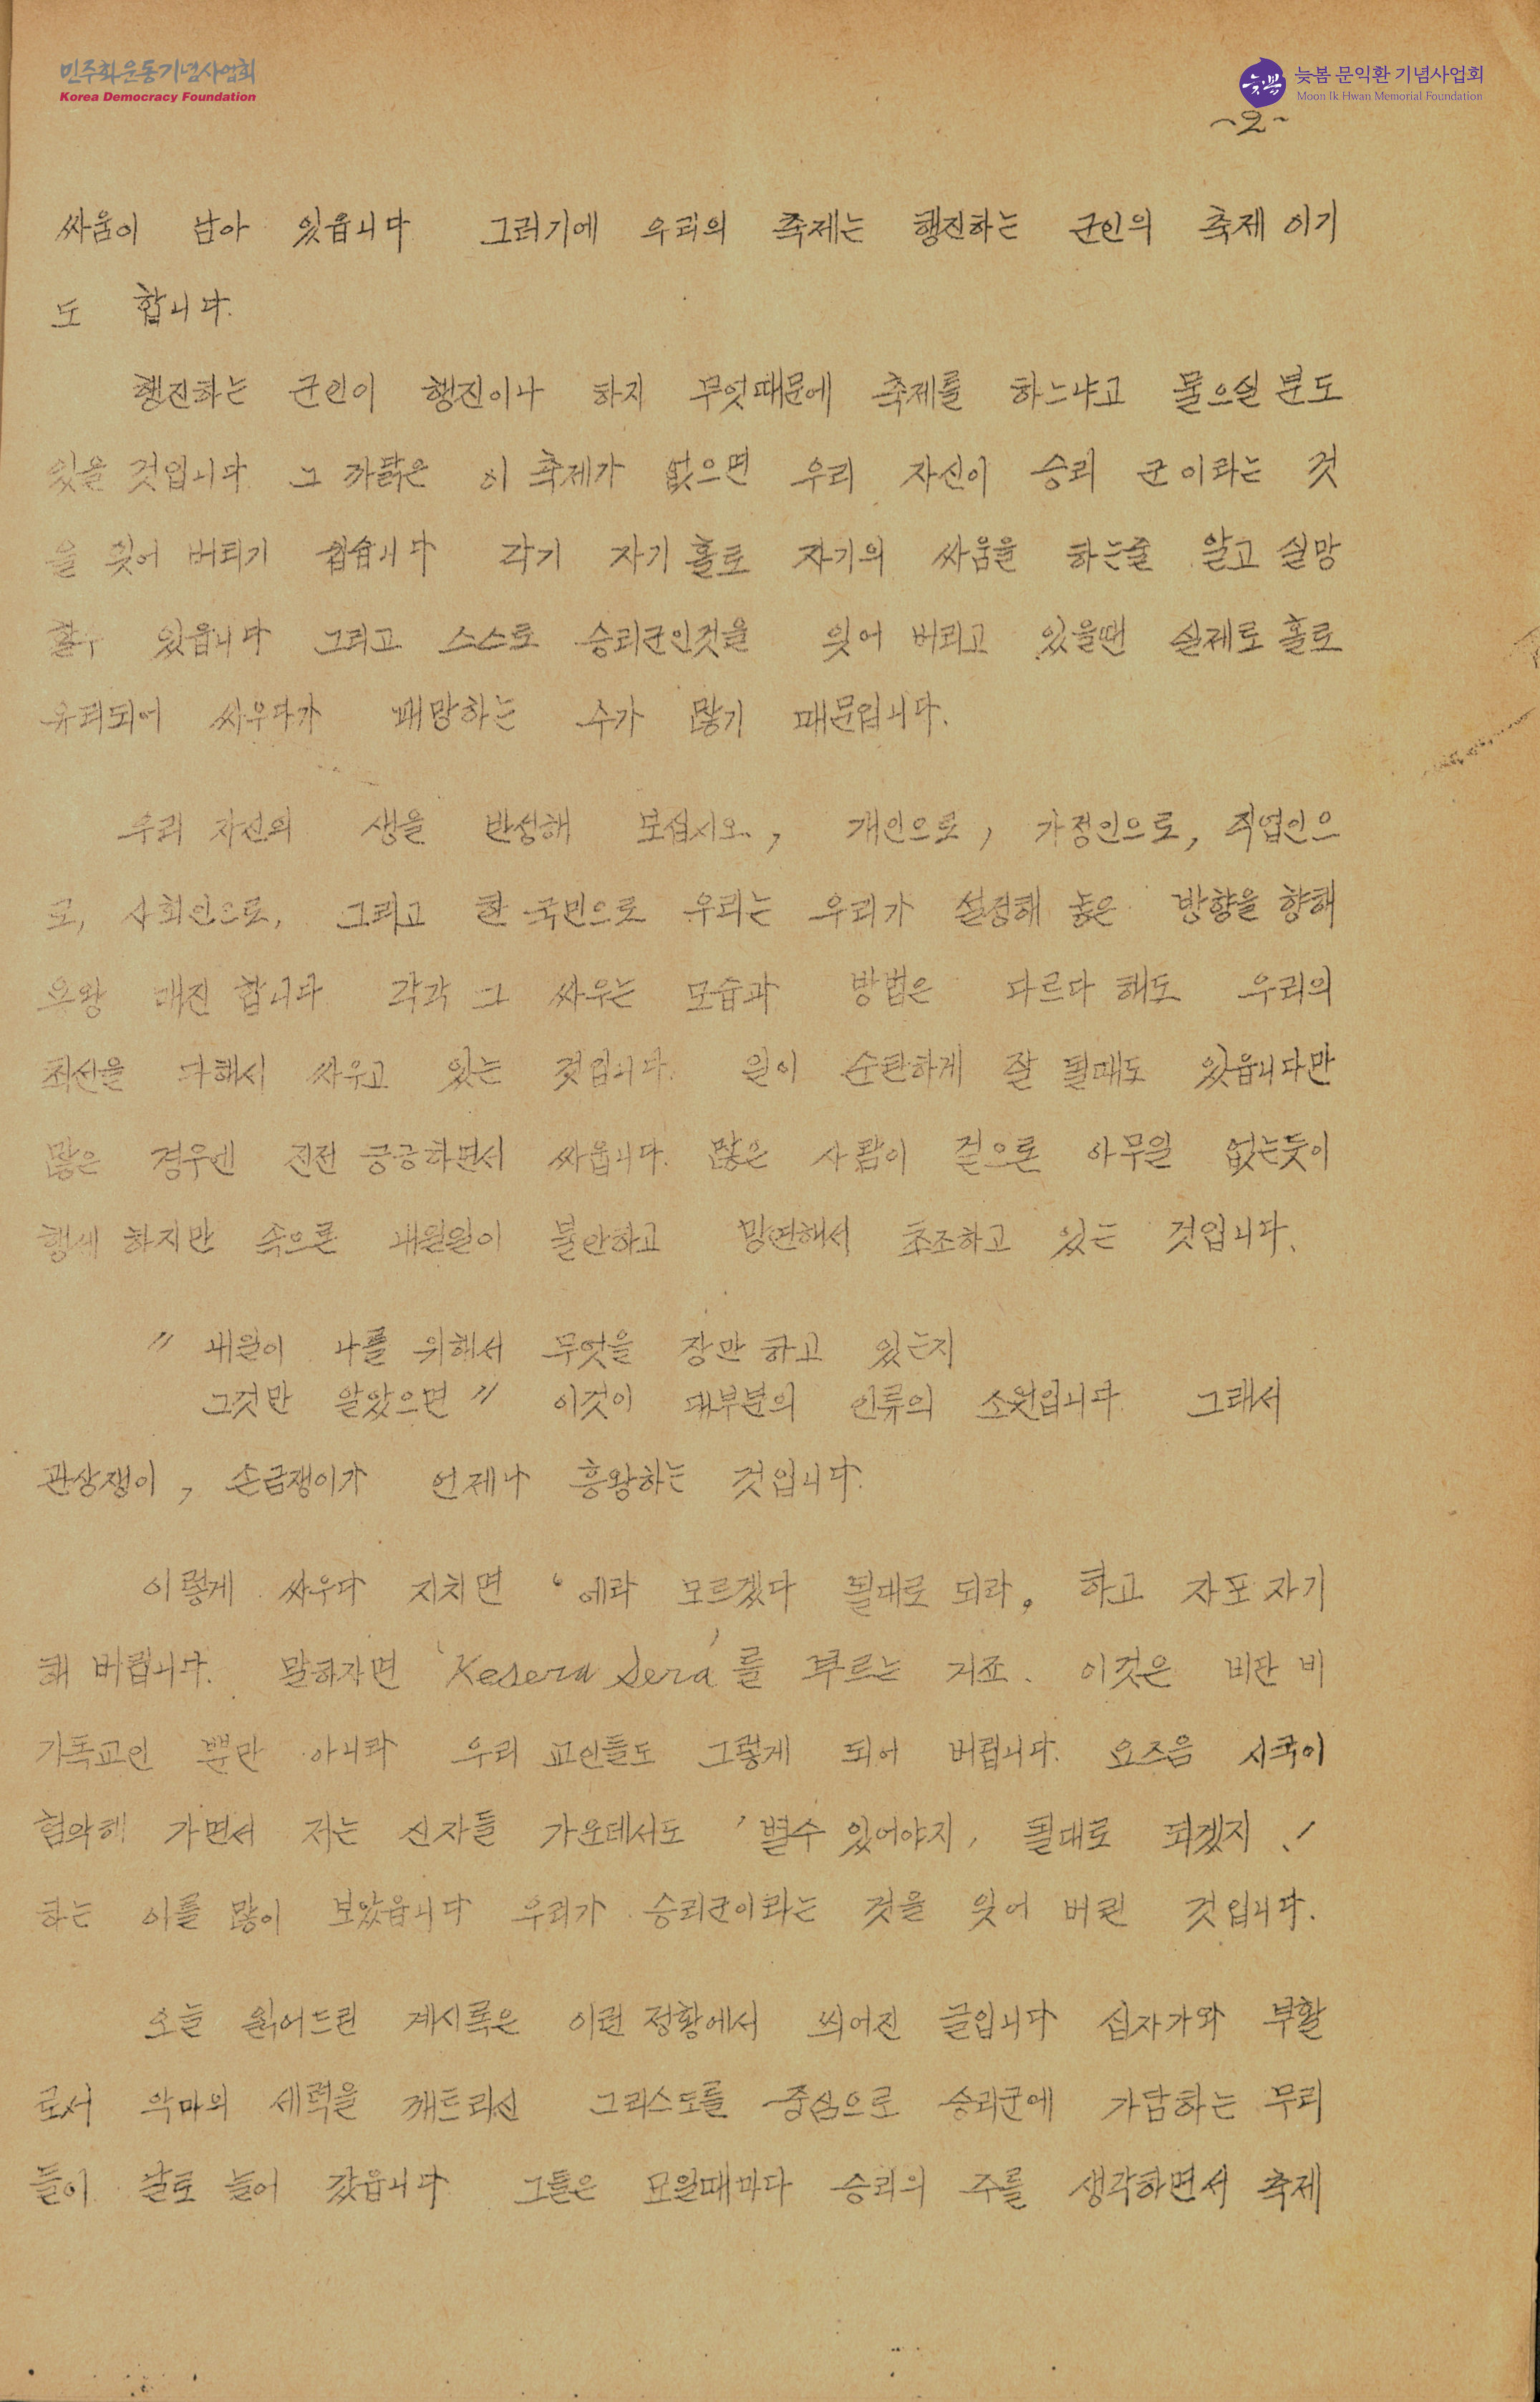 민주화운동기념사업회
Korea Democracy Foundation
늦봄 문익환 기념사업회
Moon Ik Hwan Memorial Foundation
-2-
싸움이 남아 있읍니다 그러기에 우리의 축제는 행진하는 군인의 축제 이기
도 합니다.
행진하는 군인이 행진이나 하지 무엇때문에 축제를 하느냐고 물으실 분도
있을 것입니다 그 까닭은 이 축제가 없으면 우리 자신이 승리 군이라는 것
을 잊어 버리기 쉽습니다 각기 자기 홀로 자기의 싸움을 하는줄 알고 실망
할수 있읍니다 그리고 스스로 승리군인것을 잊어 버리고 있을땐 실제로 홀로
유리되어 싸우다가 패망하는 수가 많기 때문입니다.
우리 자신의 생을 반성해 보십시오, 개인으로, 가정인으로, 직업인으
로, 사회인으로, 그리고 한 국민으로 우리는 우리가 설정해 놓은 방향을 향해
매진 합니다 각각 그 싸우는 모습과 방법은 다르다 해도 우리의
최선을 다해서 싸우고 있는 것입니다. 일이 순탄하게 잘 될때도 있읍니다만
많은 경우엔 전전 긍긍하면서 싸웁니다. 많은 사람이 겉으론 아무일 없는듯이
행세 하지만 속으론 내일일이 불안하고 망연해서 초조하고 있는 것입니다.
〃 내일이 나를 위해서 무엇을 장만 하고 있는지
그것만 알았으면 〃 이것이 대부분의 인류의 소원입니다 그래서
관상쟁이, 손금쟁이가 언제나 흥왕하는 것입니다.
이렇게 싸우다 지치면 ‘에라 모르겠다 될대로 되라, 하고 자포 자기
해 버립니다. 말하자면 'Kesera Sera'를 부르는 거죠. 이것은 비단 비
기독교인 뿐만 아니라 우리 교인들도 그렇게 되어 버립니다. 요즈음 시국이
험악해 가면서 저는 신자들 가운데서도 '별수 있어야지, 될대로 되겠지!
하는 이를 많이 보았읍니다 우리가 승리군이라는 것을 잊어 버린 것입니다.
오늘 읽어드린 계시록은 이런 정황에서 씌어진 글입니다 십자가와 부활
로서 악마의 세력을 깨트리신 그리스도를 중심으로 승리군에 가담하는 무리
들이 날로 늘어 갔읍니다 그들은 모일때마다 승리의 주를 생각하면서 축제